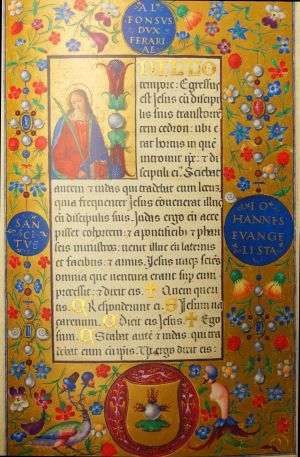 AL
FONSVS
DVX
FERARI
AE
SAN
SCEN
TVS
IO
HANNES
EVANGE
LISTA
IN ILLO
tempore: Egressus
est Jesus cū discipu
lis suis trans torrē
tem cedron: ubi e
rat hortus in quē
introiuit ip̄e: et di
scipuli ei9. Sciebat
autem et iudas qui tradebat eum locū
quia frequenter Jesus conuenerat illuc
cū discipulis suis. Judas ergo cū acce
pisset cohortem: et a pontificibꝫ et phari
seis ministros: uenit illuc cū laternis
et facibus: et armis. Jesus itaqꝫ sciēs
omnia que uentura erant sup eum
processit: et dixit eis. Quem queri
tis. Responderunt ei. Jesum na
zarenum. Dicit eis Jesus. Ego
sum. Stabat autē et iudas: qui tra
debat eum cū ipis. Ut ergo dixit eis: